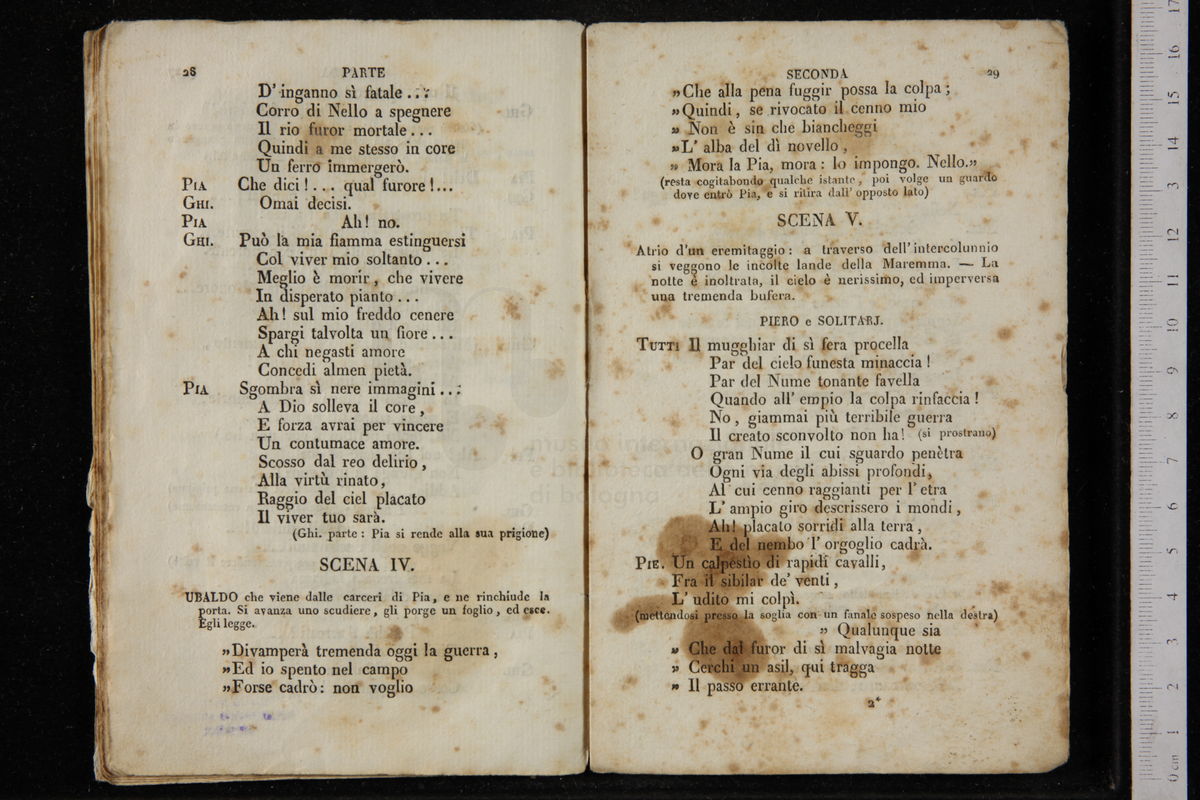 28 PARTE
D' inganno sì fatale . . .
Corro di Nello a spegnere
Il rio furor mortale . . .
Quindi a me stesso in core
Un ferro immergerò.
PIA Che dici ! . . . qual furore ! . . .
GHI. Omai decisi.
PIA Ah! no.
GHI. Può la mia fiamma estinguersi
Col viver mio soltanto . . .
Meglio è morir , che vivere
In disperato pianto . . .
Ah! sul mio freddo cenere
Spargi talvolta un fiore . . .
A chi negasti amore
Concedi almen pietà.
PIA Sgombra sì nere immagini . . .
A Dio solleva il core ,
E forza avrai per vincere
Un contumace amore.
Scosso dal reo delirio ,
Alla virtù rinato ,
Raggio del ciel placato
Il viver tuo sarà.
(Ghi. parte : Pia si rende alla sua prigione)
SCENA IV.
UBALDO che viene dalle carceri di Pia, e ne rinchiude la
porta. Si avanza uno scudiere, gli porge un foglio, ed esce.
Egli legge.
»Divamperà tremenda oggi la guerra ,
»Ed io spento nel campo
»Forse cadrò : non voglio
SECONDA 29
»Che alla pena fuggir possa la colpa ;
»Quindi , se rivocato il cenno mio
» Non è sin che biancheggi
»L' alba del dì novello ,
» Mora la Pia, mora : lo impongo. Nello.»
(resta cogitabondo qualche istante, poi volge un guardo
dove entrò Pia, e si ritira dall' opposto lato)
SCENA V.
Atrio d'un eremitaggio : a traverso dell' intercolunnio
si veggono le incolte lande della Maremma. — La
notte è inoltrata, il cielo è nerissimo, ed imperversa
una tremenda bufera.
PIERO e SOLITARJ.
TUTTI Il mugghiar di sì fera procella
Par del cielo funesta minaccia !
Par del Nume tonante favella
Quando all' empio la colpa rinfaccia !
No , giammai più terribile guerra
Il creato sconvolto non ha! (si prostrano)
O gran Nume il cui sguardo penètra
Ogni via degli abissi profondi,
Al cui cenno raggianti per l' etra
L' ampio giro descrissero i mondi ,
Ah! placato sorridi alla terra ,
E del nembo l' orgoglio cadrà.
PIE. Un calpestìo di rapidi cavalli,
Fra il sibilar de' venti ,
L' udito mi colpì.
(mettendosi presso la soglia con un fanale sospeso nella destra)
» Qualunque sia
» Che dal furor di sì malvagia notte
» Cerchi un asil, qui tragga
» Il passo errante.
2*